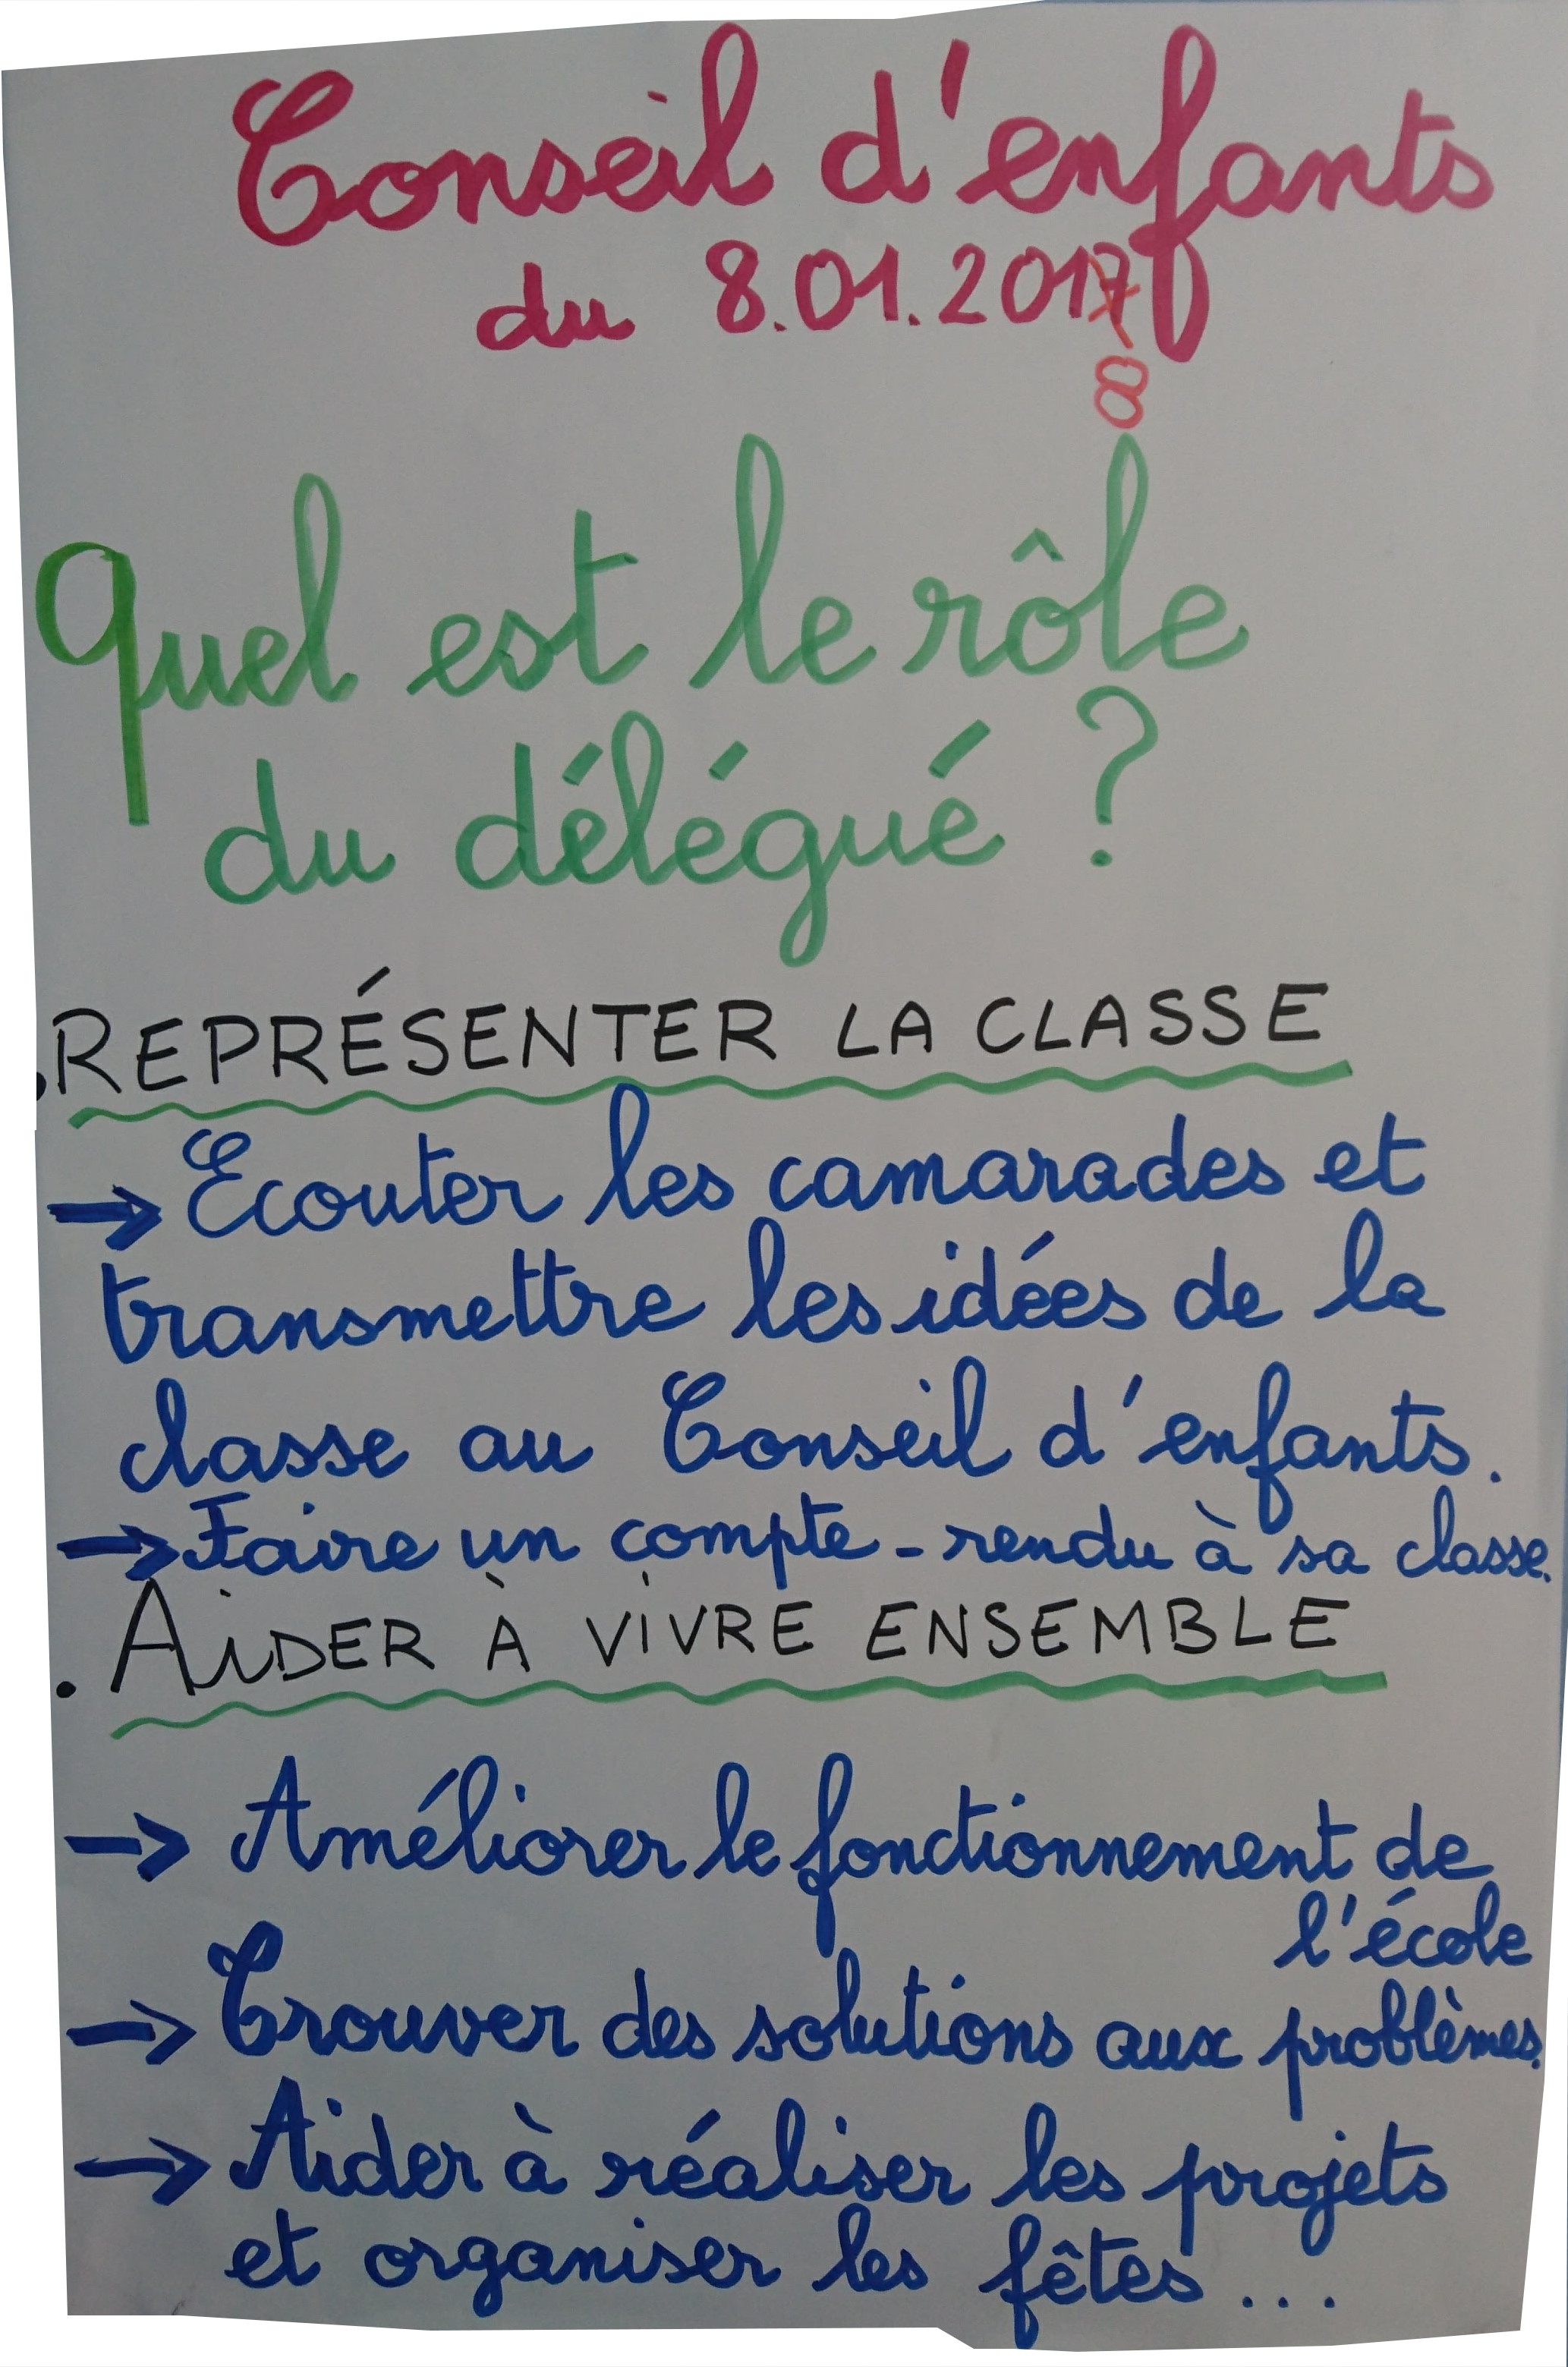 Conseil d'enfants
du 8.01.2017
8
Quel est le rôle
du délégué ?
. REPRÉSENTER LA CLASSE
→ Ecouter les camarades et
transmettre les idées de la
classe au Conseil d'enfants.
→ Faire un compte-rendu à sa classe.
. AiDER À ViVRE ENSEMBLE
→ Améliorer le fonctionnement de
l'école
→ Trouver des solutions aux problèmes.
→ Aider à réaliser les projets
et organiser les fêtes...